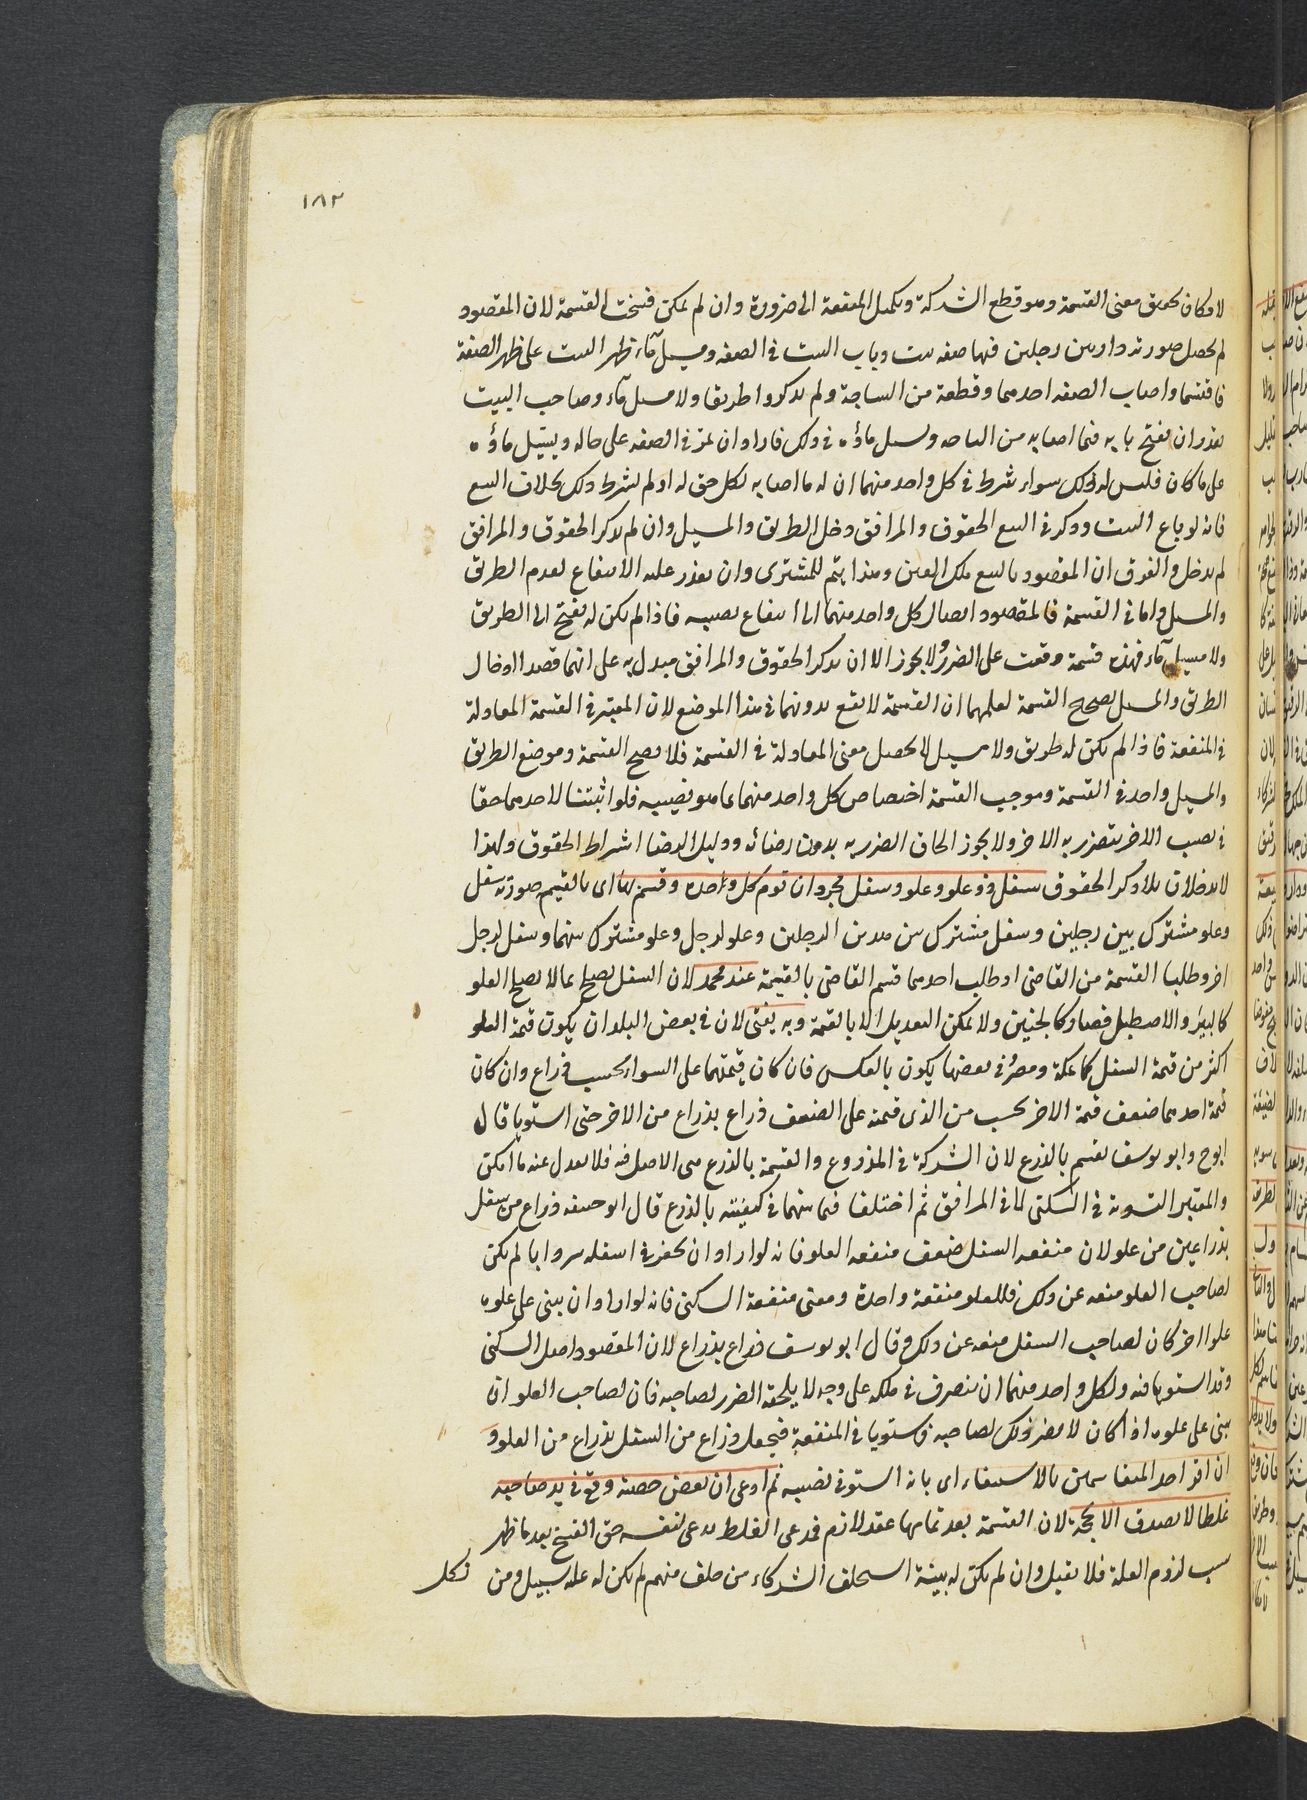 ١٨٢
لامكان تحقيق معنى القسمة وهو قطع الشركة وتكميل المنفعة الى ضرورة وان لم يمكن فسخت القسمة لان المقصود
لم يحصل صورته دار بين رجلين فيها صفه بيت وباب البيت في الصفه ومسيل مآء ظهر البيت على ظهر الصفة
فاقتسما واصاب الصفه احدهما وقطعة من الساحة ولم يذكروا طريقا ولا مسيل مآء وصاحب البيت
يقدر ان يفتح بابه فيما اصابه من الساحه ويسيل ماؤه في ذلك فاراد ان يمر في الصفه على حاله ويسيل ماؤه
على ما كان فليس له ذلك سواء شرط في كل واحد منهما ان له ما اصابه بكل حق له او لم يشرط ذلك بخلاف البيع
فانه لو باع البيت وذكر في البيع الحقوق والمرافق دخل الطريق والمسيل وان لم يذكر الحقوق والمرافق
لم يدخل والفرق ان المقصود بالبيع ملك العين وهذا يتم للمشترى وان تعذر عليه الانتفاع لعدم الطريق
والمسيل واما في القسمة فالمقصود ايصال كل واحد منهما الى انتفاع نصيبه فاذا لم يكن له مفتح الى الطريق
ولا مسيل مآء فهذه قسمة وقعت على الضرر ولا يجوز الا ان بذكر الحقوق والمرافق يستدل به على انهما قصدا ادخال
الطريق والمسيل لصحح القسمة لعلمهما ان القسمة لا تقع بدونهما في هذا الموضع لان المعتبر في القسمة المعادلة
في المنفعة فاذا لم يكن له طريق ولا مسيل لا يحصل معنى المعادلة في القسمة فلا يصح القسمة وموضع الطريق
والمسيل واحد في القسمة وموجب القسمة اختصاص كل واحد منهما بما هو نصيبه فلو اثبتنا لاحدهما حقا
في نصيب الاخر يتضرر به الاخر ولا يجوز الحاق الضرر به بدون رضائه ودليل الرضا اشراط الحقوق ولهذا
لا يدخلان بلا ذكر الحقوق سفل ذو علو وعلو وسفل مجردان قوم كل واحدة وقسم بها اى بالقيم صورته سفل
وعلو مشترك بين رجلين وسفل مشترك بين هذين الرجلين وعلو لرجل وعلو مشترك بينهما وسفل لرجل
اخر وطلبا القسمة من القاضى او طلب احدهما قسم القاضى بالقيمة عند محمد لان السفل يصلح لما لا يصلح العلو
كالبئر والاصطبل فصارا كالجنسين ولا يمكن التعديل الا بالقيمة وبه يفتى لان في بعض البلدان يكون قيمة العلو
اكثر من قيمة السفل كما بمكة ومصر وفي بعضها يكون بالعكس فان كان قيمتهما على السواء يحسب ذراع وان كان
قيمة احدهما ضعف قيمة الاخر يحسب من الذى قيمته على الضعف ذراع بذراع من الاخر حتى استويا قال
ابو ح وابو يوسف يقسم بالذرع لان الشركة في المذروع والقسمة بالذرع هى الاصل فيه فلا يعدل عنه ما امكن
والمعتبر التسوية في السكنى لا في المرافق ثم اختلفا فيما بينهما في كيفيته بالذرع قال ابو حنيفه ذراع من سفل
بذراعين من علو لان منفعه السفل ضعف منفعه العلو فانه لو اراد ان يحفر في اسفله سردابا لم يكن
لصاحب العلو منعه عن ذلك فللعلو منفعة واحدة ومعنى منفعة السكنى فانه لو اراد ان يبنى على علوه
علوا اخر كان لصاحب السفل منعه عن ذلك وقال ابو يوسف ذراع بذراع لان المقصود اصل السكنى
وقد استويا فيه ولكل واحد منهما ان يتصرف في ملكه على وجه لا يلحقه الضرر لصاحبه فان لصاحب العلو ان
يبنى على علوه اذا كان لا يضر ذلك لصاحبه فاستويا في المنفعة فيجعل ذراع من السفل بذراع من العلو و
ان اقر احد المتقاسمين بالاستيفاء اى بانه استوفى نصيبه ثم ادعى ان بعض حصته وقع في يد صاحبه
غلطا لا يصدق الا بحجة لان القسمة بعد تمامها عقد لازم فمدعى الغلط يدعى لنفسه حق الفسخ بعد ما ظهر
سبب لزوم العلة فلا يقبل وان لم يكن له بينة استحلف الشركاء من حلف منهم لم يكن له عليه سبيل ومن
نكل